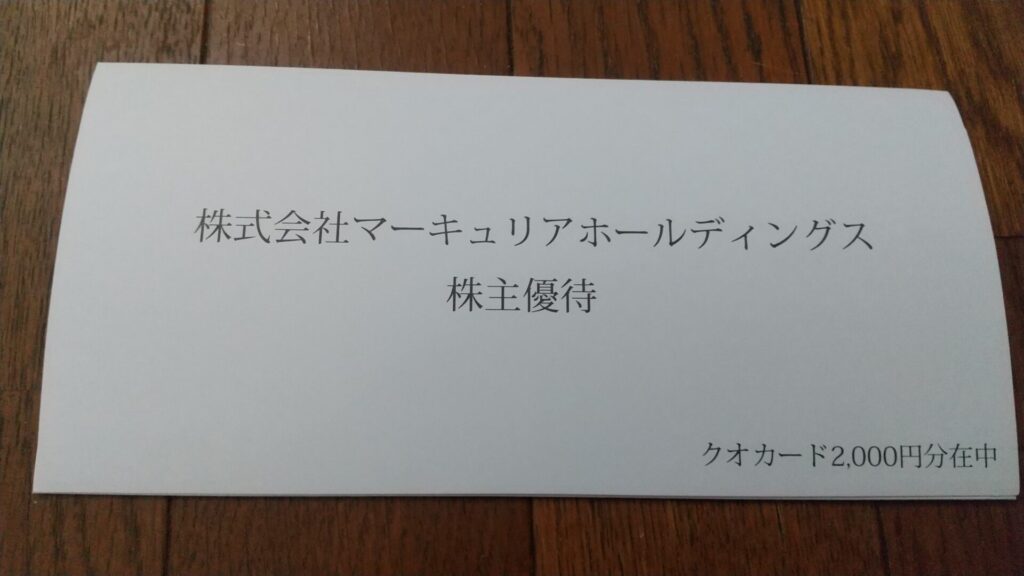 株式会社マーキュリアホールディングス
株主優待
クオカード2,000円分在中